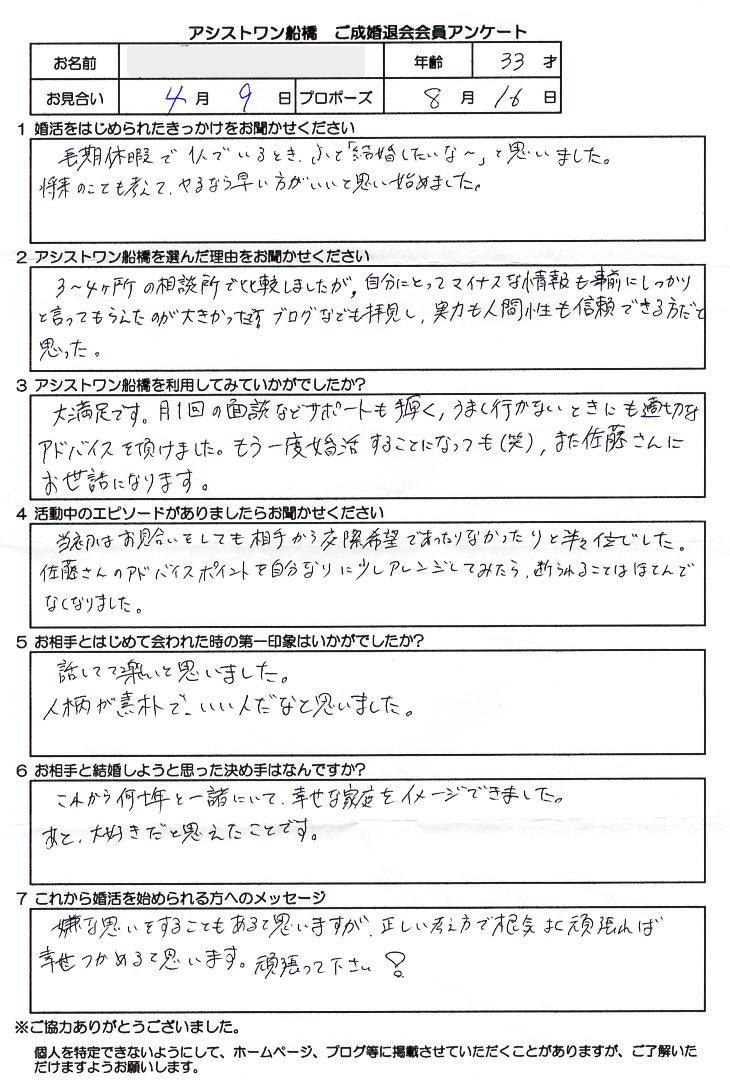 アシストワン船橋 ご成婚退会会員アンケート
お名前 年齢 33 才
お見合い 4 月 9 日 プロポーズ 8 月 16 日
1 婚活をはじめられたきっかけをお聞かせください
長期休暇で1人でいるとき、ふと「結婚したいな〜」と思いました。
将来のことも考えて、やるなら早い方がいいと思い始めました。
2 アシストワン船橋を選んだ理由をお聞かせください
3〜4ヶ所の相談所で比較しましたが、自分にとってマイナスな情報も事前にしっかり
と言ってもらえたのが大きかったです。ブログなども拝見し、実力も人間性も信頼できる方だと
思った。
3 アシストワン船橋を利用してみていかがでしたか?
大満足です。月1回の面談などサポートも厚く、うまく行かないときにも適切な
アドバイスを頂けました。もう一度婚活することになっても(笑)、また佐藤さんに
お世話になります。
4 活動中のエピソードがありましたらお聞かせください
当初はお見合いをしても相手から交際希望であったりなかったりと半々位でした。
佐藤さんのアドバイスポイントを自分なりに少しアレンジしてみたら、断られることはほとんで
なくなりました。
5 お相手とはじめて会われた時の第一印象はいかがでしたか?
話してて楽しいと思いました。
人柄が素朴で、いい人だなと思いました。
6 お相手と結婚しようと思った決め手はなんですか?
これから何十年と一諸にいて、幸せな家庭をイメージできました。
あと、大好きだと思えたことです。
7 これから婚活を始められる方へのメッセージ
嫌な思いをすることもあると思いますが、正しい考え方で根気よく頑張れば
幸せつかめると思います。頑張って下さい!
※ご協力ありがとうございました。
個人を特定できないようにして、ホームページ、ブログ等に掲載させていただくことがありますが、ご了解いた
だけますようお願いします。